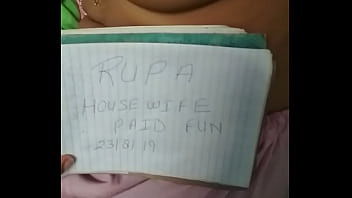 RUPA
HOUSE WIFE
PAID FUN
23/8/19